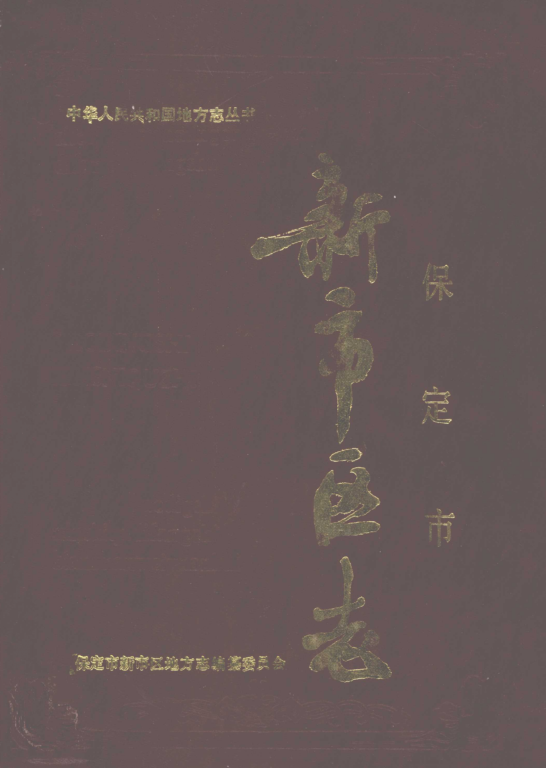 中华人民共和国地方志丛书
保定市
新市区志
保定市新市区地方志编纂委员会